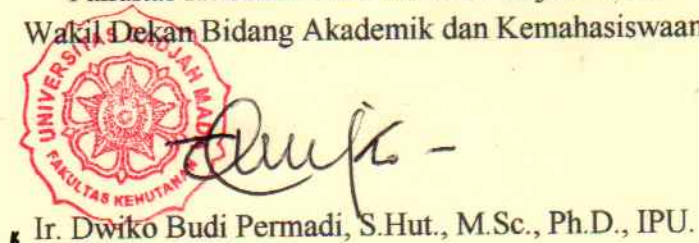 Wakil Dekan Bidang Akademik dan Kemahasiswaan
UNIVERSITAS GADJAH MADA
FAKULTAS KEHUTANAN
Ir. Dwiko Budi Permadi, S.Hut., M.Sc., Ph.D., IPU.